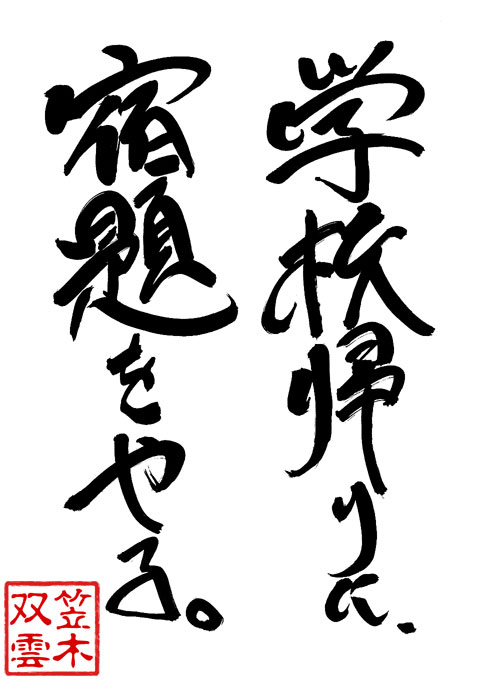 学校帰りに、
宿題をやる。
笠木
双雲